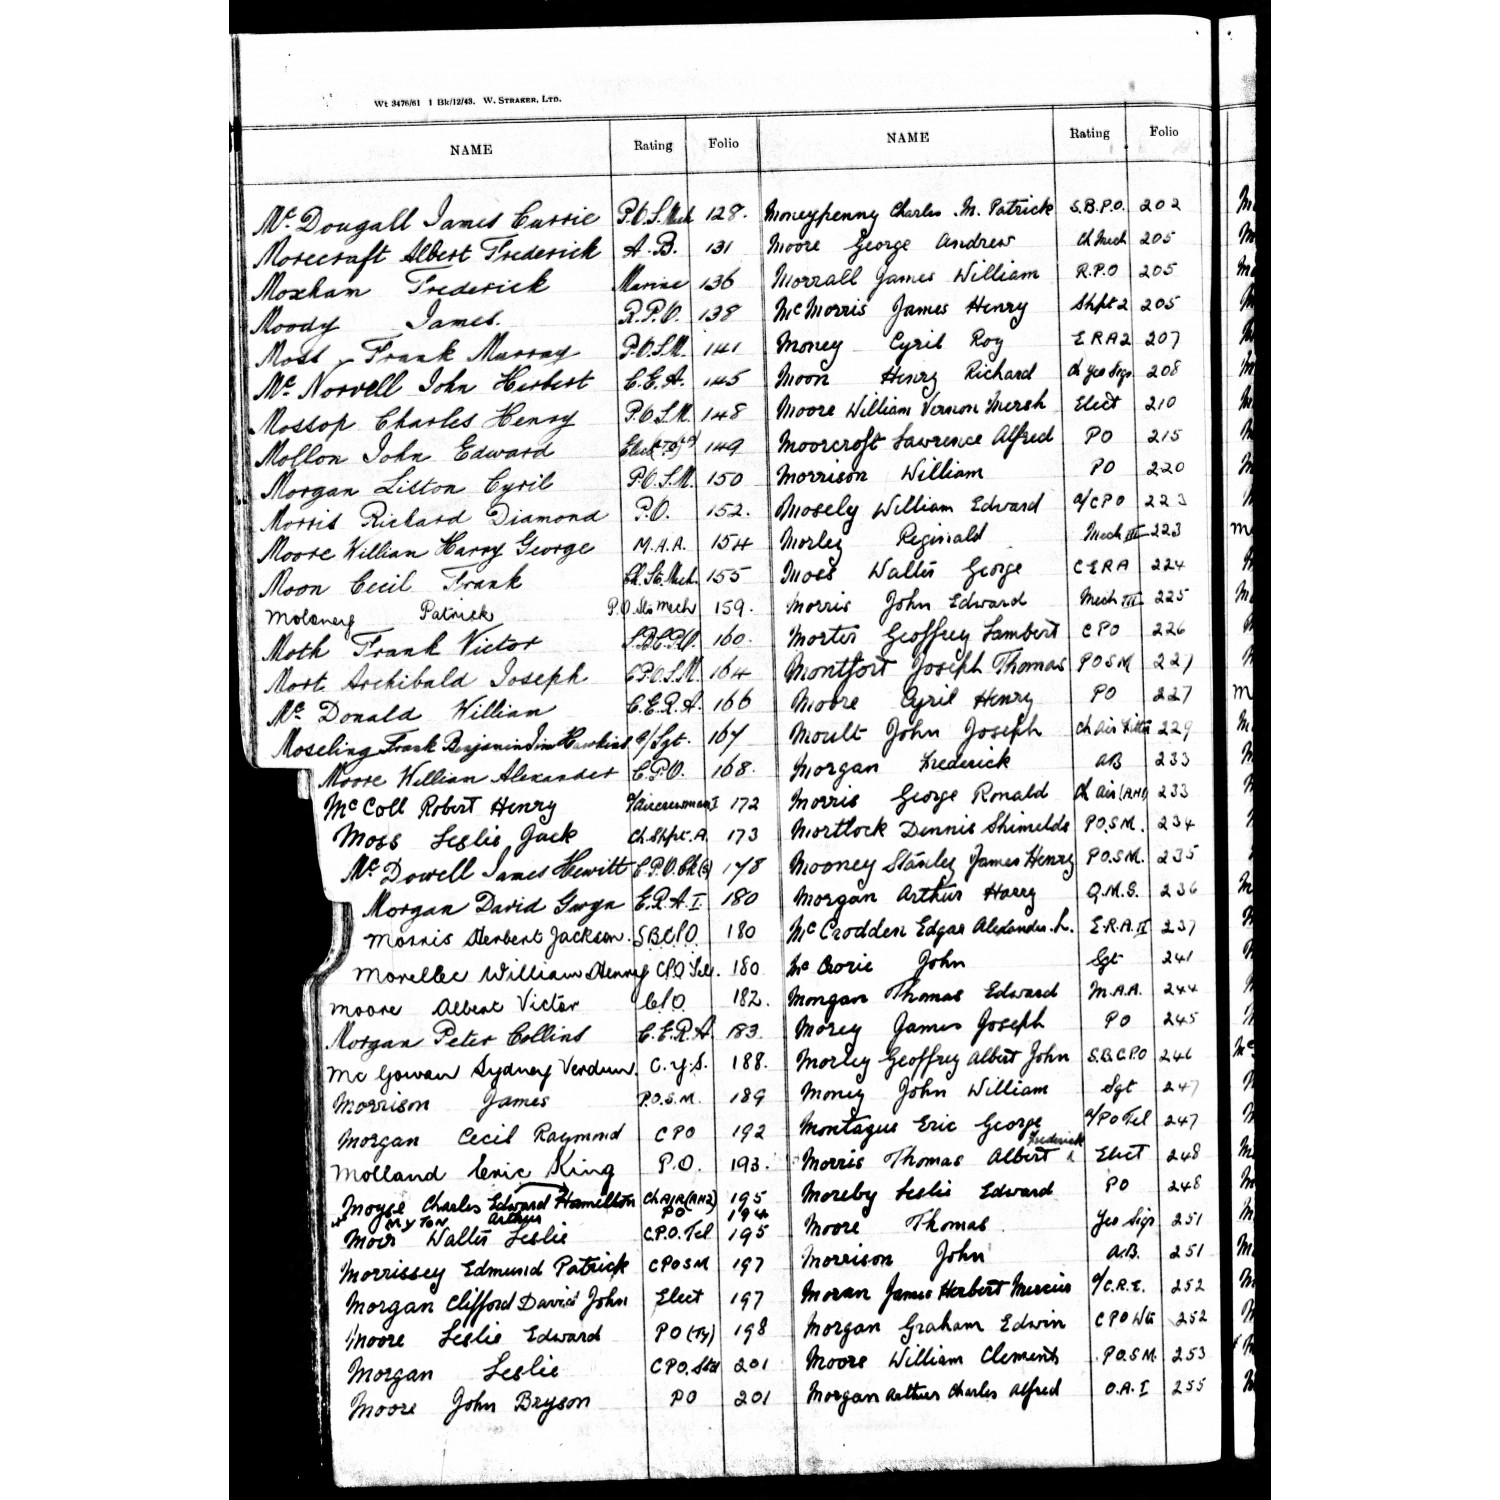 Wt 3476/61 1 Bk/12/43. W. STRAKER, LTD.
NAME Rating Folio
McDougall James Currie P.O.S.Mech 128.
Morecraft Albert Frederick A.B. 131
Moxham Frederick Marine 136
Moody James. R.P.O. 138
Moss Frank Murray P.O.S.M. 141
Mc Norvell John Herbert C.E.A. 145
Mossop Charles Henry P.O.S.M. 148
Mollon John Edward 149
Morgan Litton Cyril P.O.S.M. 150
Morris Richard Diamond P.O. 152.
Moore William Harry George M.A.A. 154
Moon Cecil Frank Ch.St.Mech. 155
Moloney Patrick P.O. Sto Mech 159.
Moth Frank Victor S.B.C.P.O. 160.
Mort Archibald Joseph C.P.O.S.M. 164
Mc Donald William C.E.R.A. 166
Moseling Frank Benjamin Jim Hawkins a/Sgt. 167
Moore William Alexander C.P.O. 168.
McColl Robert Henry 172
Moss Leslie Jack Ch.Shpt.A. 173
McDowell James Hewitt C.P.O.Ck(S) 178
Morgan David Gwyn E.R.A.I. 180
Morris Herbert Jackson. S.B.C.P.O. 180
Morellec William Henry C.P.O. Tel. 180
Moore Albert Victor C.P.O. 182.
Morgan Peter Collins C.E.R.A. 183.
McGowan Sydney Verdun. C.Y.S. 188.
Morrison James P.O.S.M. 189
Morgan Cecil Raymond CPO 192
Molland Eric King P.O. 193.
Moyse Charles Edward Hamilton Ch AIR (AH2) 195
MYTON Arthur PO 194
Moir Walter Leslie C.P.O. Tel 195
Morrissey Edmund Patrick CPOSM 197
Morgan Clifford David John Elect 197
Moore Leslie Edward PO (Ty) 198
Morgan Leslie CPO. Std 201
Moore John Bryson PO 201
NAME Rating Folio
Moneypenny Charles M. Patrick S.B.P.O. 202
Moore George Andrew Ch Mech 205
Morrall James William R.P.O 205
McMorris James Henry Shpt 2 205
Money Cyril Roy ERA2 207
Moon Henry Richard Ch Yeo Sigs 208
Moore William Vernon Mersh Elect 210
Moorcroft Lawrence Alfred PO 215
Morrison William PO 220
Mosely William Edward a/CPO 223
Morley Reginald Mech III 223
Moss Walter George CERA 224
Morris John Edward Mech III 225
Morter Geoffrey Lambert CPO 226
Montfort Joseph Thomas POSM 227
Moore Cyril Henry PO 227
Moult John Joseph Ch Air Fitter 229
Morgan Frederick AB 233
Morris George Ronald Ch Air (AH1) 233
Mortlock Dennis Shimelds P.O.S.M. 234
Mooney Stanley James Henry P.O.S.M. 235
Morgan Arthur Harry Q.M.S. 236
McCrodden Edgar Alexander. L. E.R.A. II 237
McCrorie John Sgt 241
Mongan Thomas Edward M.A.A. 244
Morey James Joseph PO 245
Morley Geoffrey Albert John S.B.C.P.O 246
Money John William Sgt 247
Montague Eric George a/PO Tel 247
Morris Thomas Albert Frederick Elect 248
Moreby Leslie Edward PO 248
Moore Thomas Yeo Sigs 251
Morrison John A.B. 251
Moran James Herbert Mercier a/C.R.E. 252
Morgan Graham Edwin CPO Wtr 252
Moore William Clements P.O.S.M. 253
Morgan Arthur Charles Alfred O.A. I 255